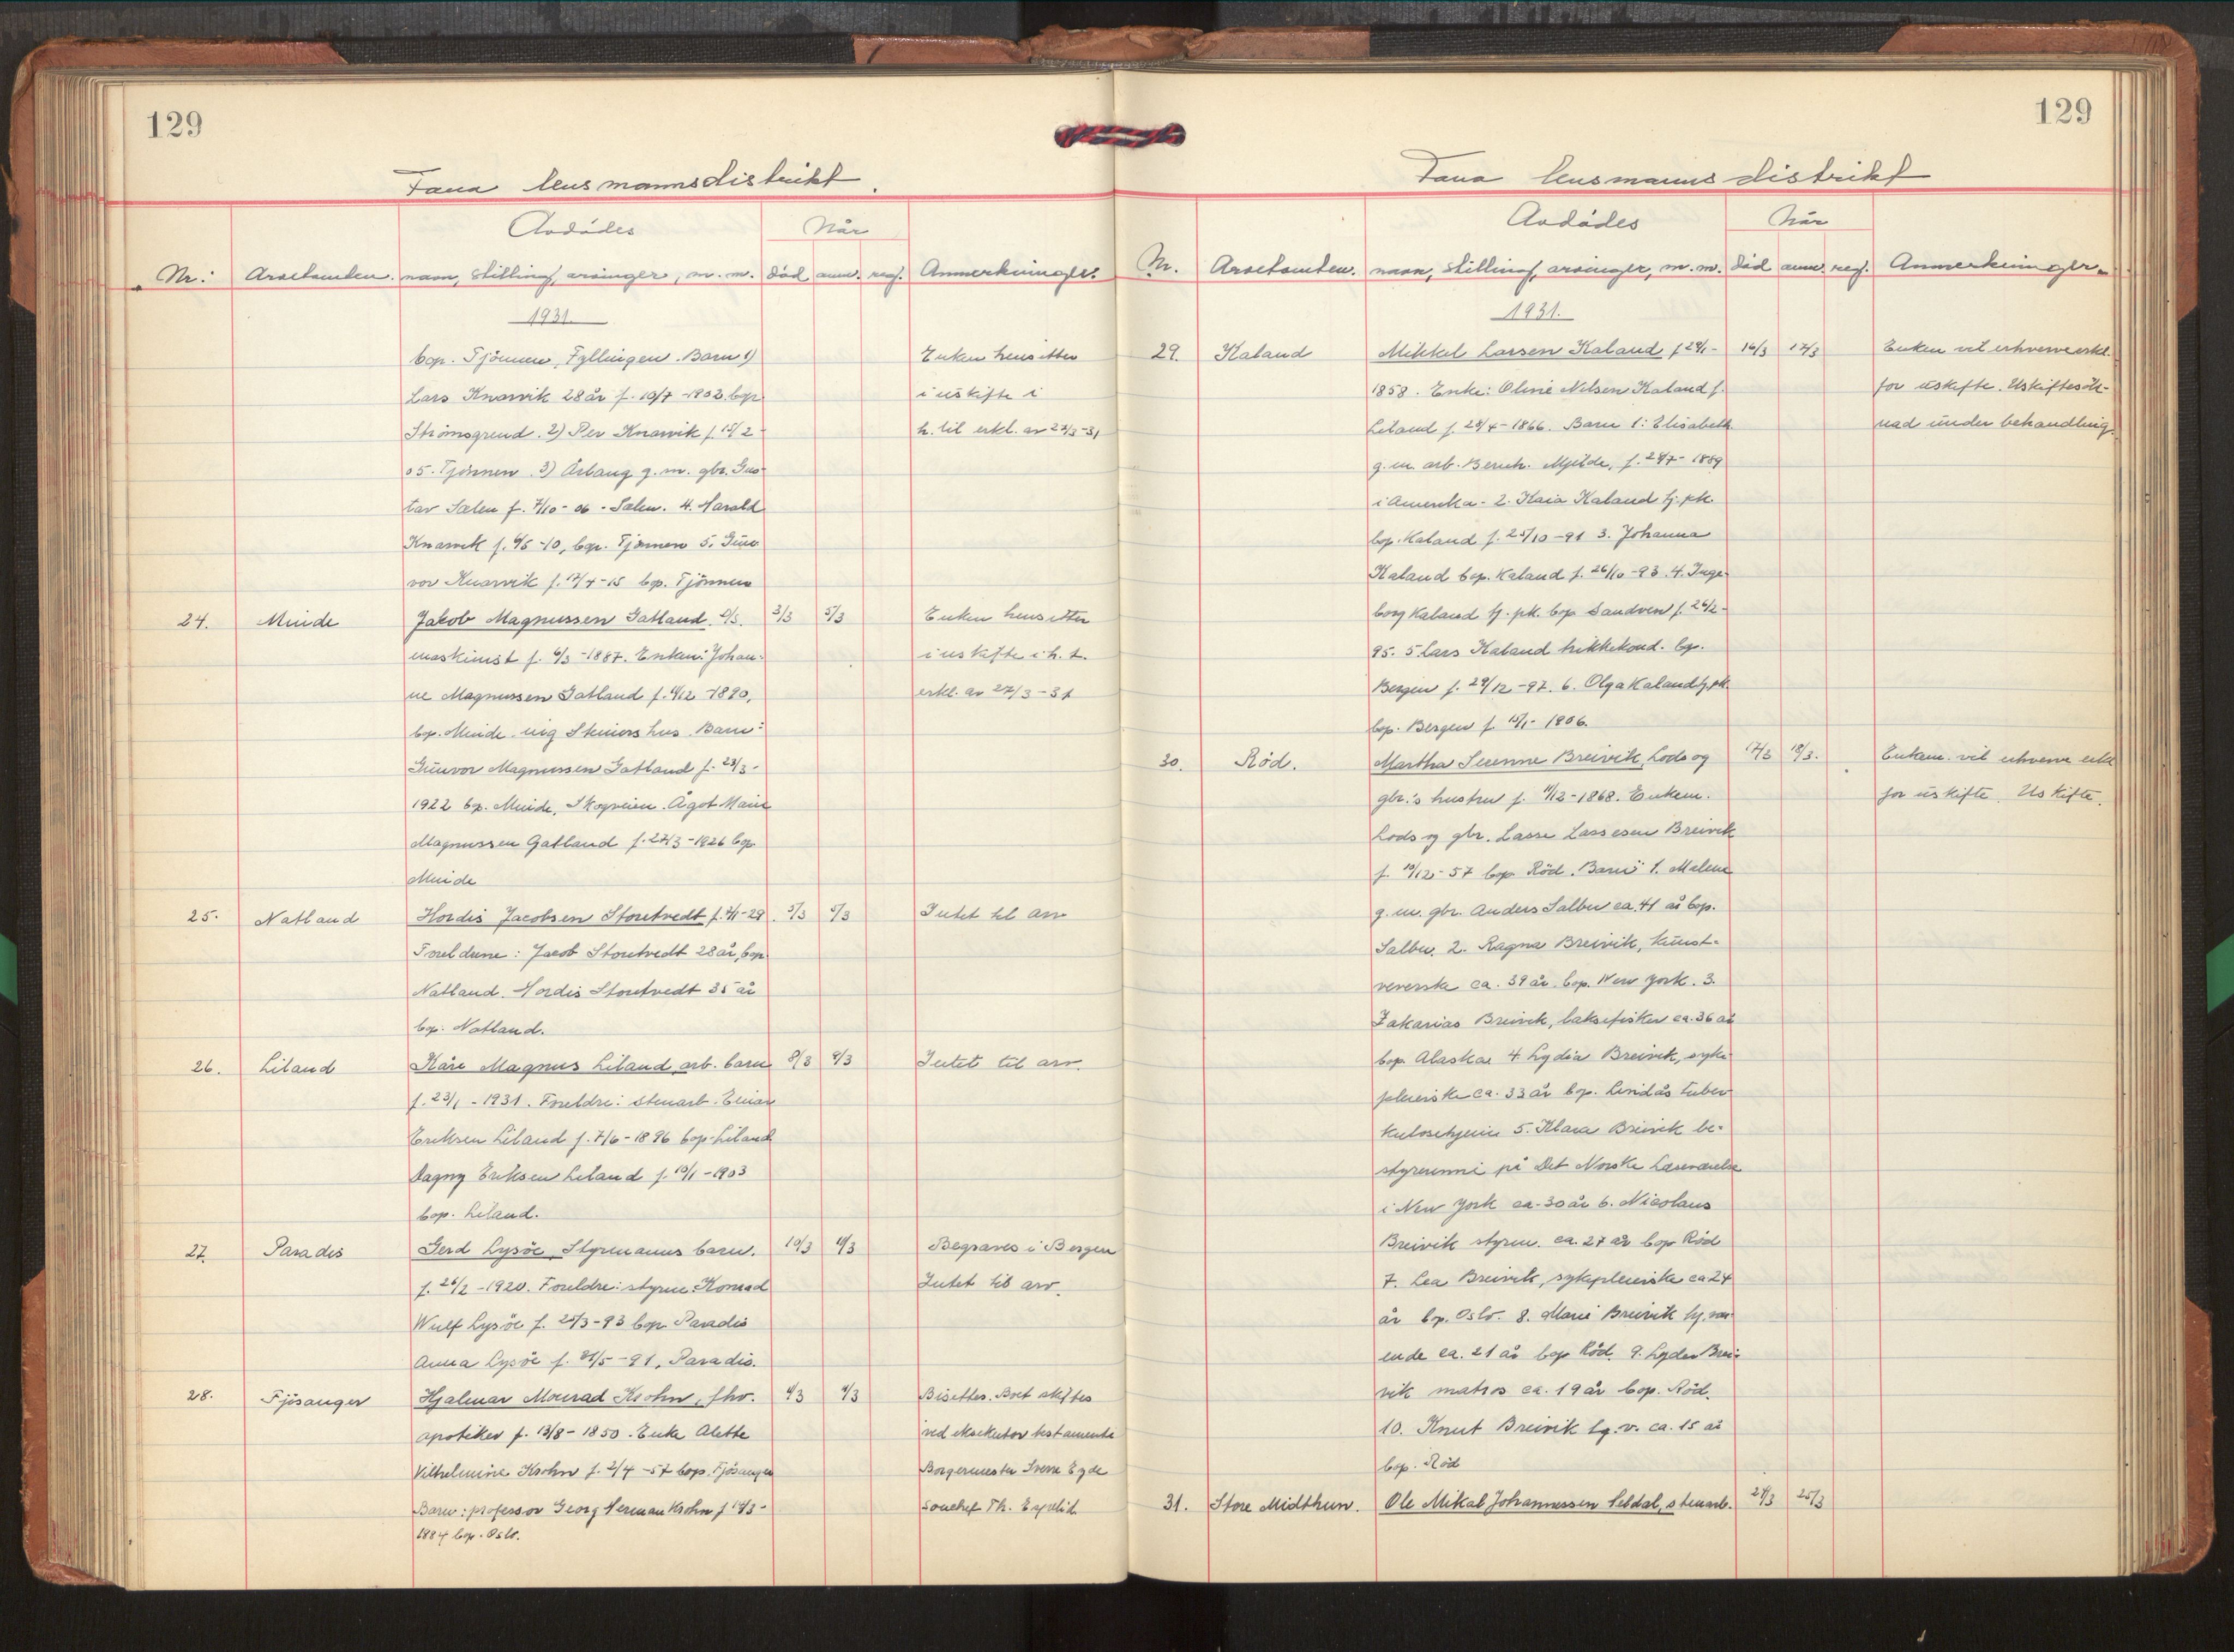 129
Fana lensmannsdistrikt.
Avdødes
Når
Nr. Avdødes navn, stilling, arvinger, m.m. død anm. reg. Anmerkninger.
1931.
bop. Tjönnen, Fyllingen. Barn 1)
Lars Knarvik 28 år f. 10/7-1902. bop.
Strömsgrend. 2) Per Knarvik f. 2
05. Tjönnen. 3) Åslaug g.m. gbr. Gus-
tav Sælen f. 7/10-06 - Sælen. 4. Harald
Knarvik f. /5-10, bop. Tjönnen 5. Gun-
vor Knarvik f. 17/4-15 bop. Tjönnen
Enken hensitter
i uskifte i
h. til erkl. av 23/3-31
24. Minde Jakob Magnussen Gatland. d/s. 3/3 5/3 Enken hensitter
maskinist f. 6/3-1887. Enken: Johan- i uskifte i h. t.
ne Magnussen Gatland f. 4/12-1890, erkl. av 27/3-31
bop. Minde. Steiners hus. Barn:
Gunvor Magnussen Gatland f. 23/3-
1922 bop. Minde, Skogveien. Ågot Marie
Magnussen Gatland f. 27/3-1926 bop.
Minde
25. Natland Hordis Jacobsen Storetvedt f. 4/1-29. 5/3 5/3 Intet til arv
Foreldrene: Jacob Storetvedt 28 år, bop.
Natland. Hordis Storetvedt 35 år
bop. Natland.
26. Liland Kåre Magnus Liland arb. barn 8/3 9/3 Intet til arv.
f. 23/1-1931. Foreldre: stenarb. Einar
Eriksen Liland f. 7/6-1896 bop. Liland
Dagny Eriksen Liland f. 10/1-1903
bop. Liland.
27. Paradis Gerd Lysöe, Styrmanns barn. 10/3 11/3 Begraves i Bergen
f. 26/2-1920. Foreldre: styrm. Konrad Intet til arv.
Wulf Lysöe f. 25/3-93 bop. Paradis
Anna Lysöe f. 31/5-91, Paradis.
28. Fjösanger Hjalmar Monrad Krohn, fhv. 9/3 Bisettes. Boet skiftes
apotiker f. 13/8-1850. Enke Alette ved eksekutor testamente
Vilhelmine Krohn f. 2/4-57 bop. Fjösanger Borgermester Sverre Eyde
Barn: professor Georg Herman Krohn f. /3- Th.
1884 bop. Oslo.
129
Fana lensmannsdistrikt
Avdødes
Når
Nr. navn, stilling, arvinger, m.m. død anm. reg. Anmerkninger.
1931.
29. Kaland Mikkel Larsen Kaland f 29/1- 16/3 17/3 Enken vil erhverve erkl.
1858. Enke: Oline Nilsen Kaland f. for uskifte. Uskiftesök-
Liland f. 28/4-1866. Barn 1: Elisabeth nad under behandling.
g.m. arb. Bernh. Mjelde, f. 29/7-1889
i Amerika. 2. Kaia Kaland tj. pk.
bop. Kaland f. 25/10-91 3. Johanna
Kaland bop. Kaland f. 26/10-93. 4. Inge-
borg Kaland tj. pk. bop Sandven f. 26/2-
95. 5. Lars Kaland trikkekond. bop.
Bergen f. 29/12-97. 6. Olga Kaland tj. pk.
bop. Bergen f. 15/1-1906.
30. Röd. Martha Breivik, Lods og 17/3 18/3. Enkem. vil erhverve erkl
gbr.'s hustru f. 11/12-1868. Enkem. for uskifte. Uskifte.
Lods og gbr. Lasse Lassesen Breivik
f. 19/12-57 bop Röd. Barn 1. Malene
g.m. gbr. Anders Salbu ca. 41 år bop.
Salbu. 2. Ragna Breivik, kunst-
veverske ca. 39 år. bop. New York. 3.
Zakarias Breivik, laksefisker ca. 36 år
bop. Alaska 4. Lydia Breivik, syke-
pleierske ca. 33 år bop. Lindås tuber-
kulosehjem 5. Klara Breivik be-
styrerinne på Det Norske Læseværelse
i New York ca. 30 år 6. Nicolaus
Breivik styrm. ca. 27 år bop Röd
7. Lea Breivik, sykepleierske ca 24
år bop. Oslo. 8. Marie Breivik hj. vær-
ende ca. 21 år bop Röd. 9. Lyder Brei-
vik matros ca. 19 år bop. Röd.
10. Knut Breivik hj. v. ca. 15 år
bop. Röd
31. Store Midthun. Ole Mikal Johannessen Seldal, stenarb. 24/3 25/3